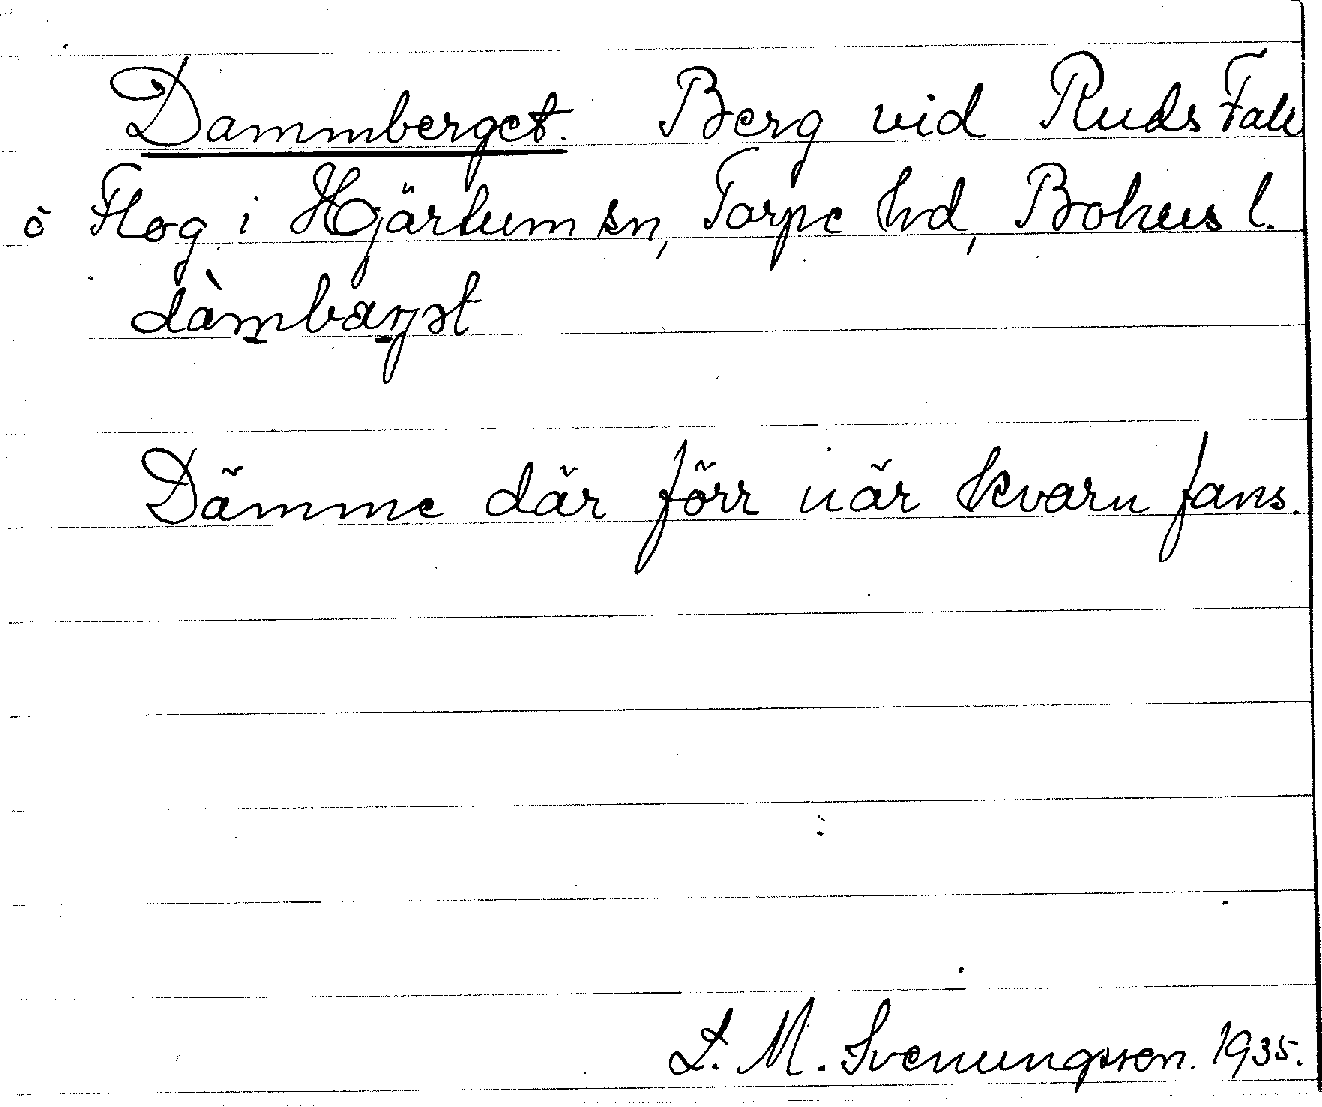 Dammberget. Berg vid Ruds Fale
ö Flog i Hjärtum sn, Torpe hd, Bohus l.
dàmbærjət
Dämme där förr när kvarn fans.
L. M. Svenungsson. 1935.